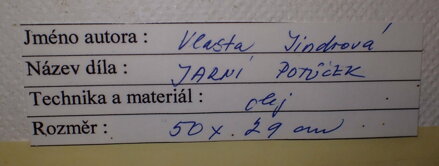 Jméno autora : Vlasta Jindrová
Název díla : JARNÍ POTŮČEK
Technika a materiál : olej
Rozměr : 50 x 29 cm